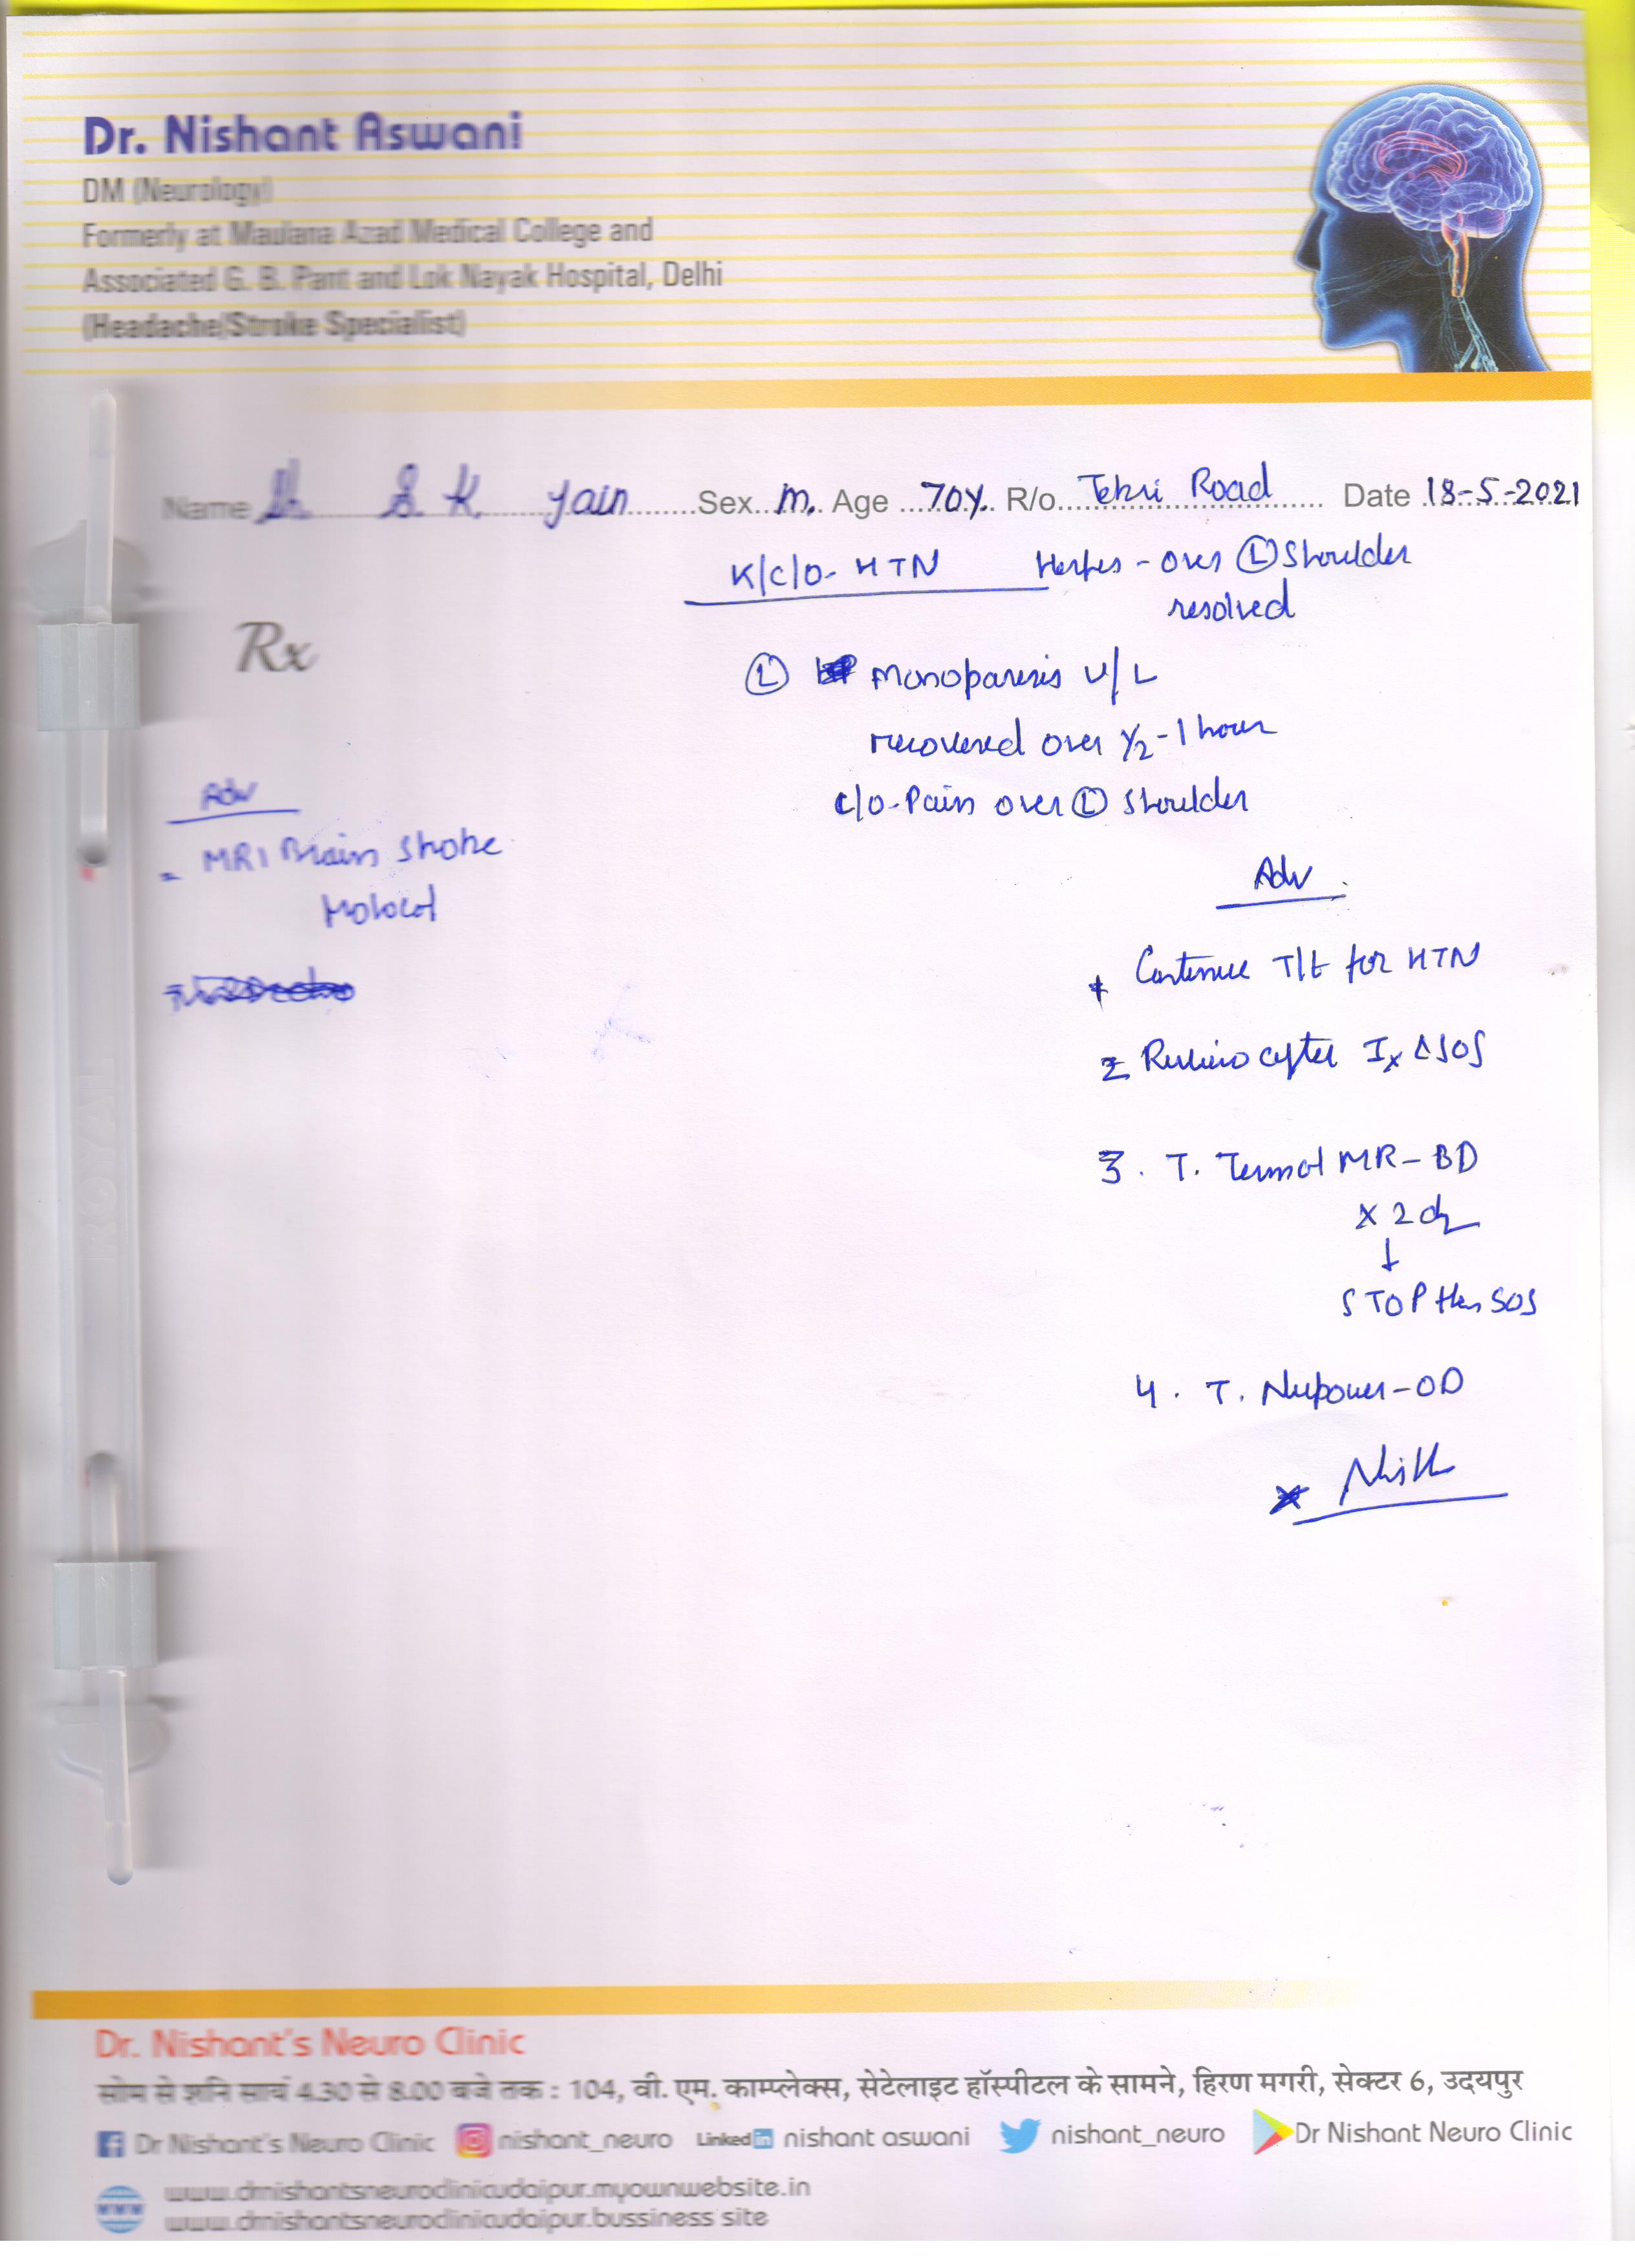 Dr. Nishant Aswani
DM (Neurology)
Formerly at Maulana Azad Medical College and
Associated G. B. Pant and Lok Nayak Hospital, Delhi
(Headache/Stroke Specialist)
Name Sh S. K. Jain Sex M. Age 70y. R/o. Tekri Road Date 18-5-2021
K/C/O- HTN Herpes - over Ⓛ Shoulder
resolved
Rx
Ⓛ Monoparesis U/L
recovered over 1/2 - 1 hour
c/o - Pain over Ⓛ Shoulder
Adv
- MRI Brain Stroke
Protocol
Adv
Continue T/t for HTN
2 Review after Ix & SOS
3. T. Termol MR - BD
x 2d
↓
STOP then SOS
4. T. Nupower - OD
Dr. Nishant's Neuro Clinic
सोम से शनि सायं 4.30 से 8.00 बजे तक : 104, वी. एम. काम्प्लेक्स, सेटेलाइट हॉस्पीटल के सामने, हिरण मगरी, सेक्टर 6, उदयपुर
Dr Nishant's Neuro Clinic nishant_neuro Linkedin nishant aswani nishant_neuro Dr Nishant Neuro Clinic
www.drnishantsneuroclinicudaipur.myownwebsite.in
www.drnishantsneuroclinicudaipur.bussiness site